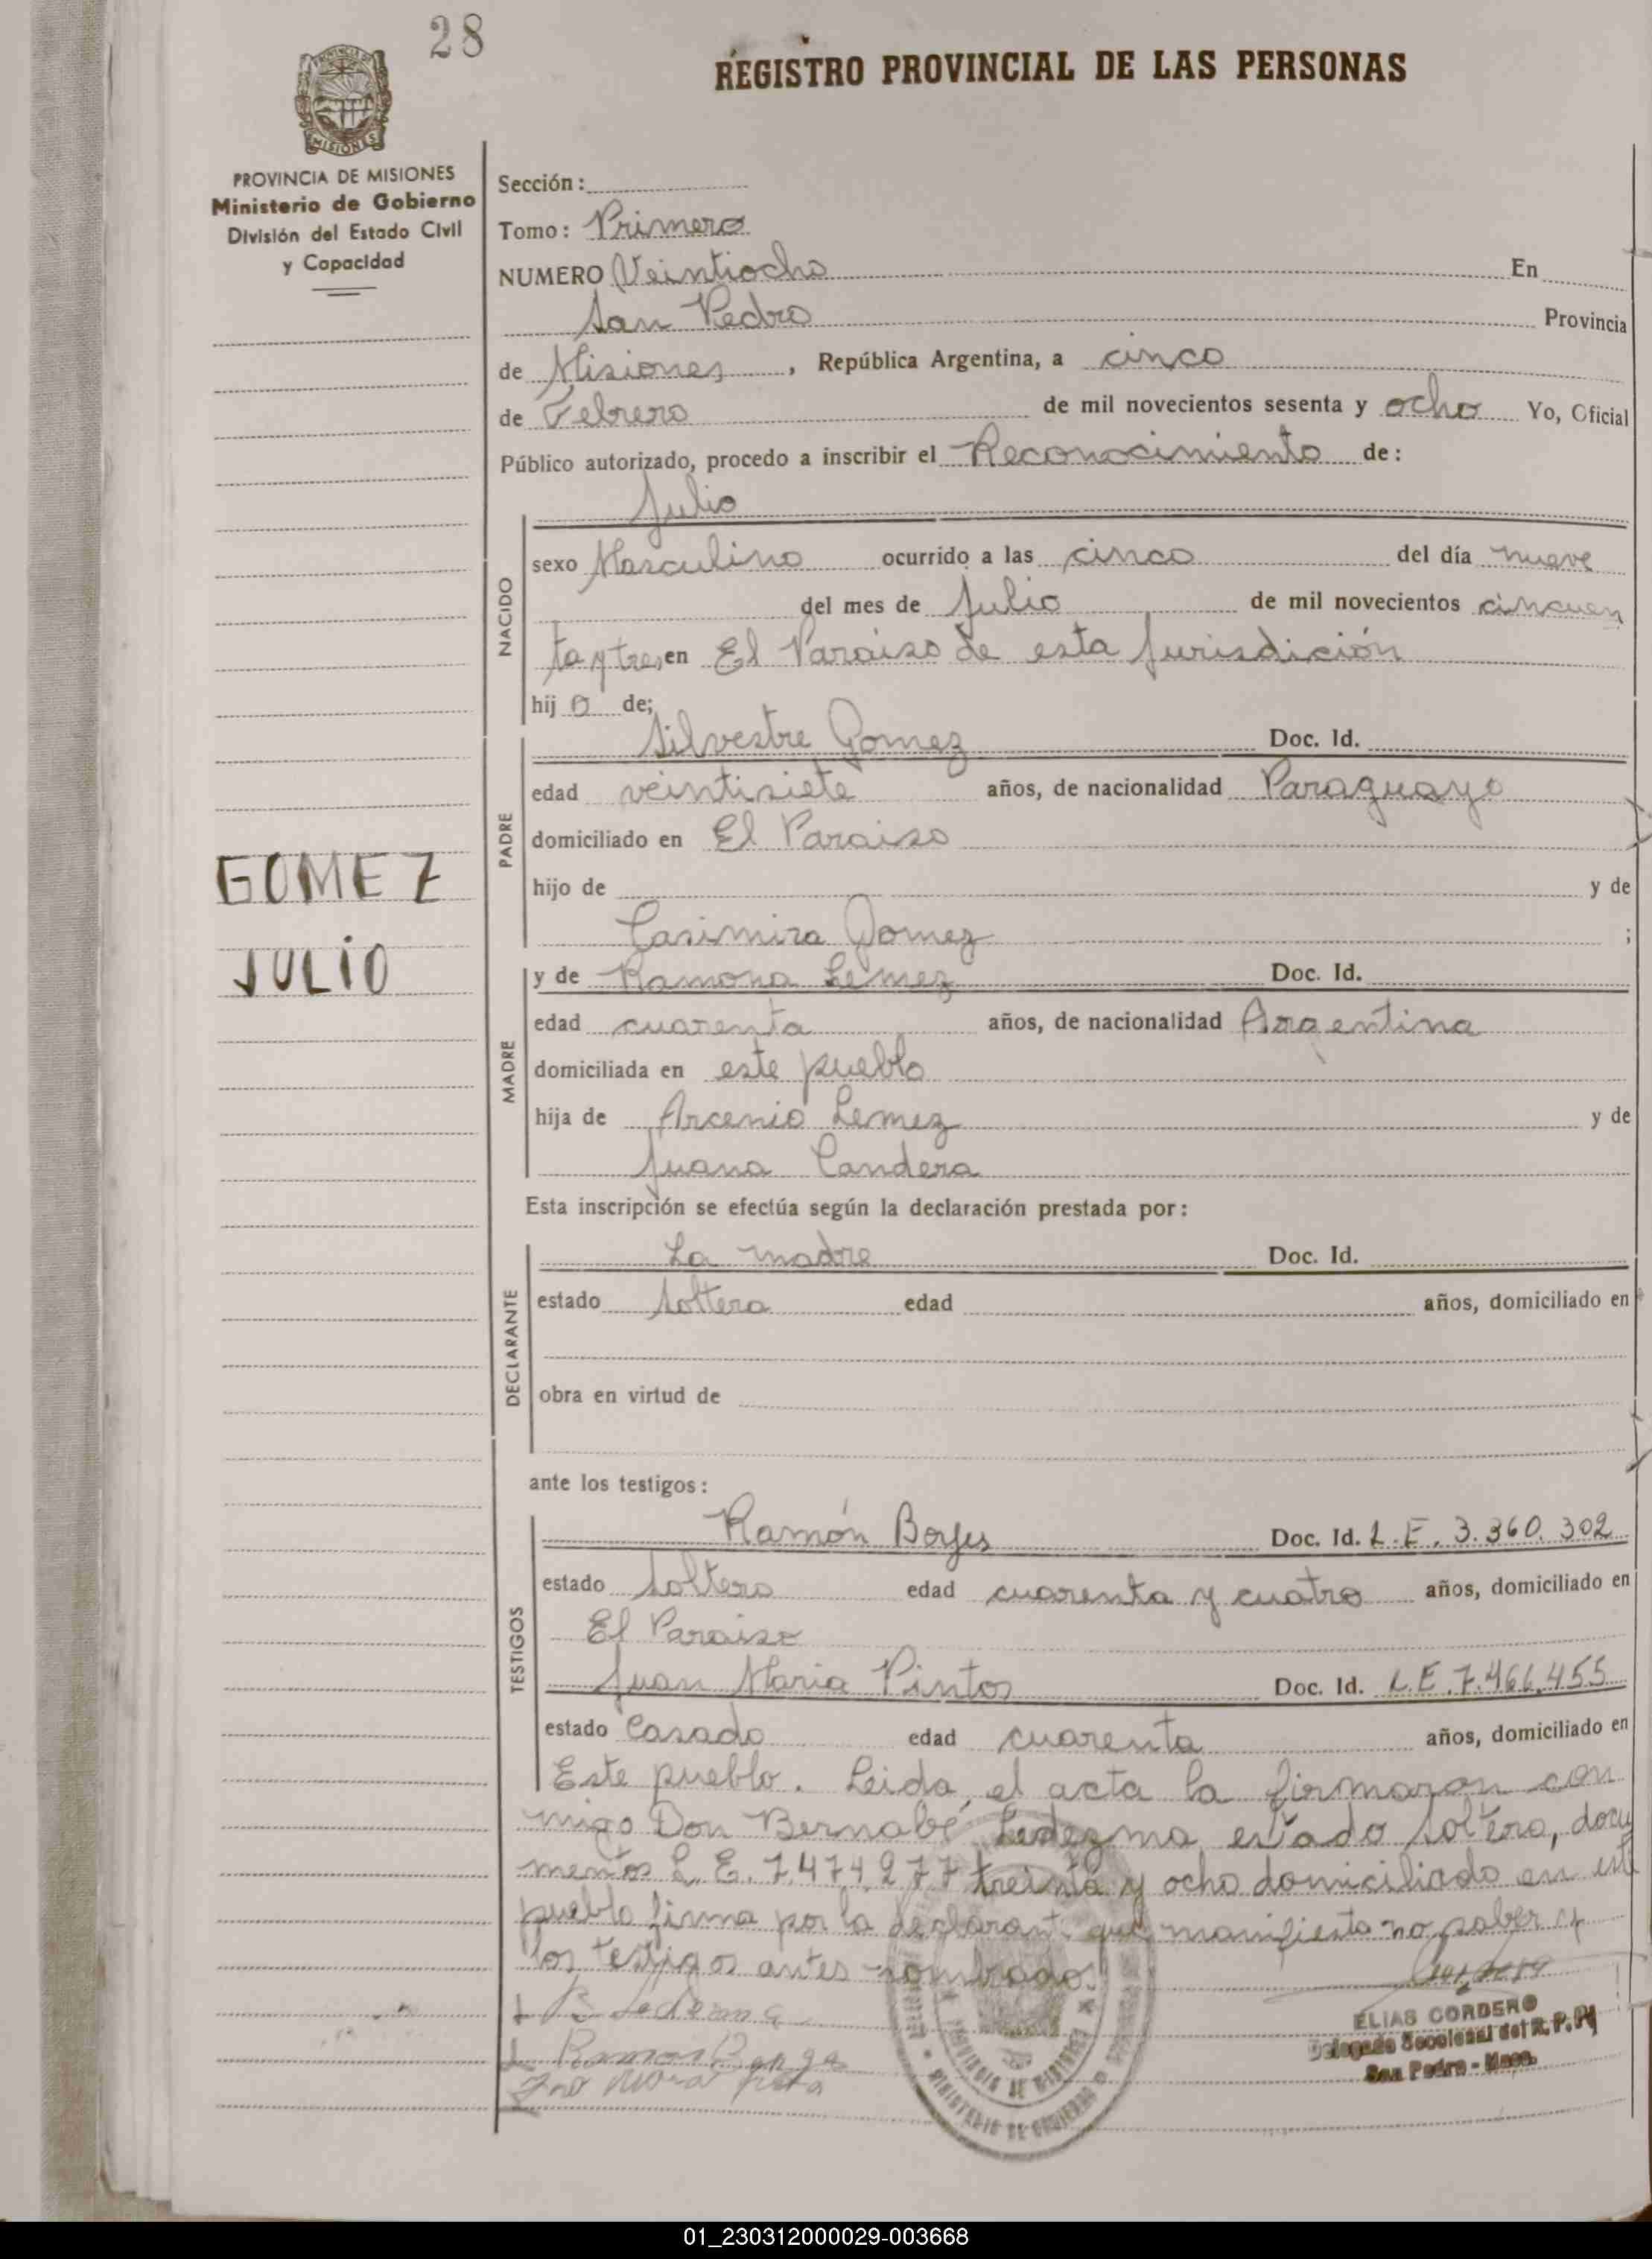 28
REGISTRO PROVINCIAL DE LAS PERSONAS
PROVINCIA DE MISIONES
Ministerio de Gobierno
División del Estado Civil
y Capacidad
Sección:
Tomo: Primero
NUMERO Veintiocho En
San Pedro Provincia
de Misiones, República Argentina, a cinco
de Febrero de mil novecientos sesenta y ocho Yo, Oficial
Público autorizado, procedo a inscribir el Reconocimiento de:
Julio
NACIDO
sexo Masculino ocurrido a las cinco del día nueve
del mes de Julio de mil novecientos cincuen
ta y tres en El Paraiso de esta Jurisdición
hijo de;
PADRE
Silvestre Gomez Doc. Id.
edad veintisiete años, de nacionalidad Paraguayo
domiciliado en El Paraiso
hijo de y de
Casimira Gomez ;
GOMEZ
JULIO
MADRE
y de Ramona Lemez Doc. Id.
edad cuarenta años, de nacionalidad Argentina
domiciliada en este pueblo
hija de Arcenio Lemez y de
Juana Candera
Esta inscripción se efectúa según la declaración prestada por:
DECLARANTE
La madre Doc. Id.
estado Soltera edad años, domiciliado en
obra en virtud de
ante los testigos:
TESTIGOS
Ramón Borges Doc. Id. L.E. 3.360.302
estado Soltero edad cuarenta y cuatro años, domiciliado en
El Paraiso
Juan Maria Pintos Doc. Id. L.E. 7.466.455
estado Casado edad cuarenta años, domiciliado en
Este pueblo. Leida el acta la firmaron con
migo Don Bernabé Ledezma estado Soltero, docu
mentos L.E. 7.474.277 treinta y ocho domiciliado en este
pueblo firma por la declarant que manifiesta no saber y
los testigos antes nombrados.
B Ledezma
Ramon
ELIAS CORDERO
Delegado Seccional del R.P.P.
San Pedro - Mnes.
PROVINCIA DE MISIONES
MINISTERIO DE GOBIERNO
01_230312000029-003668